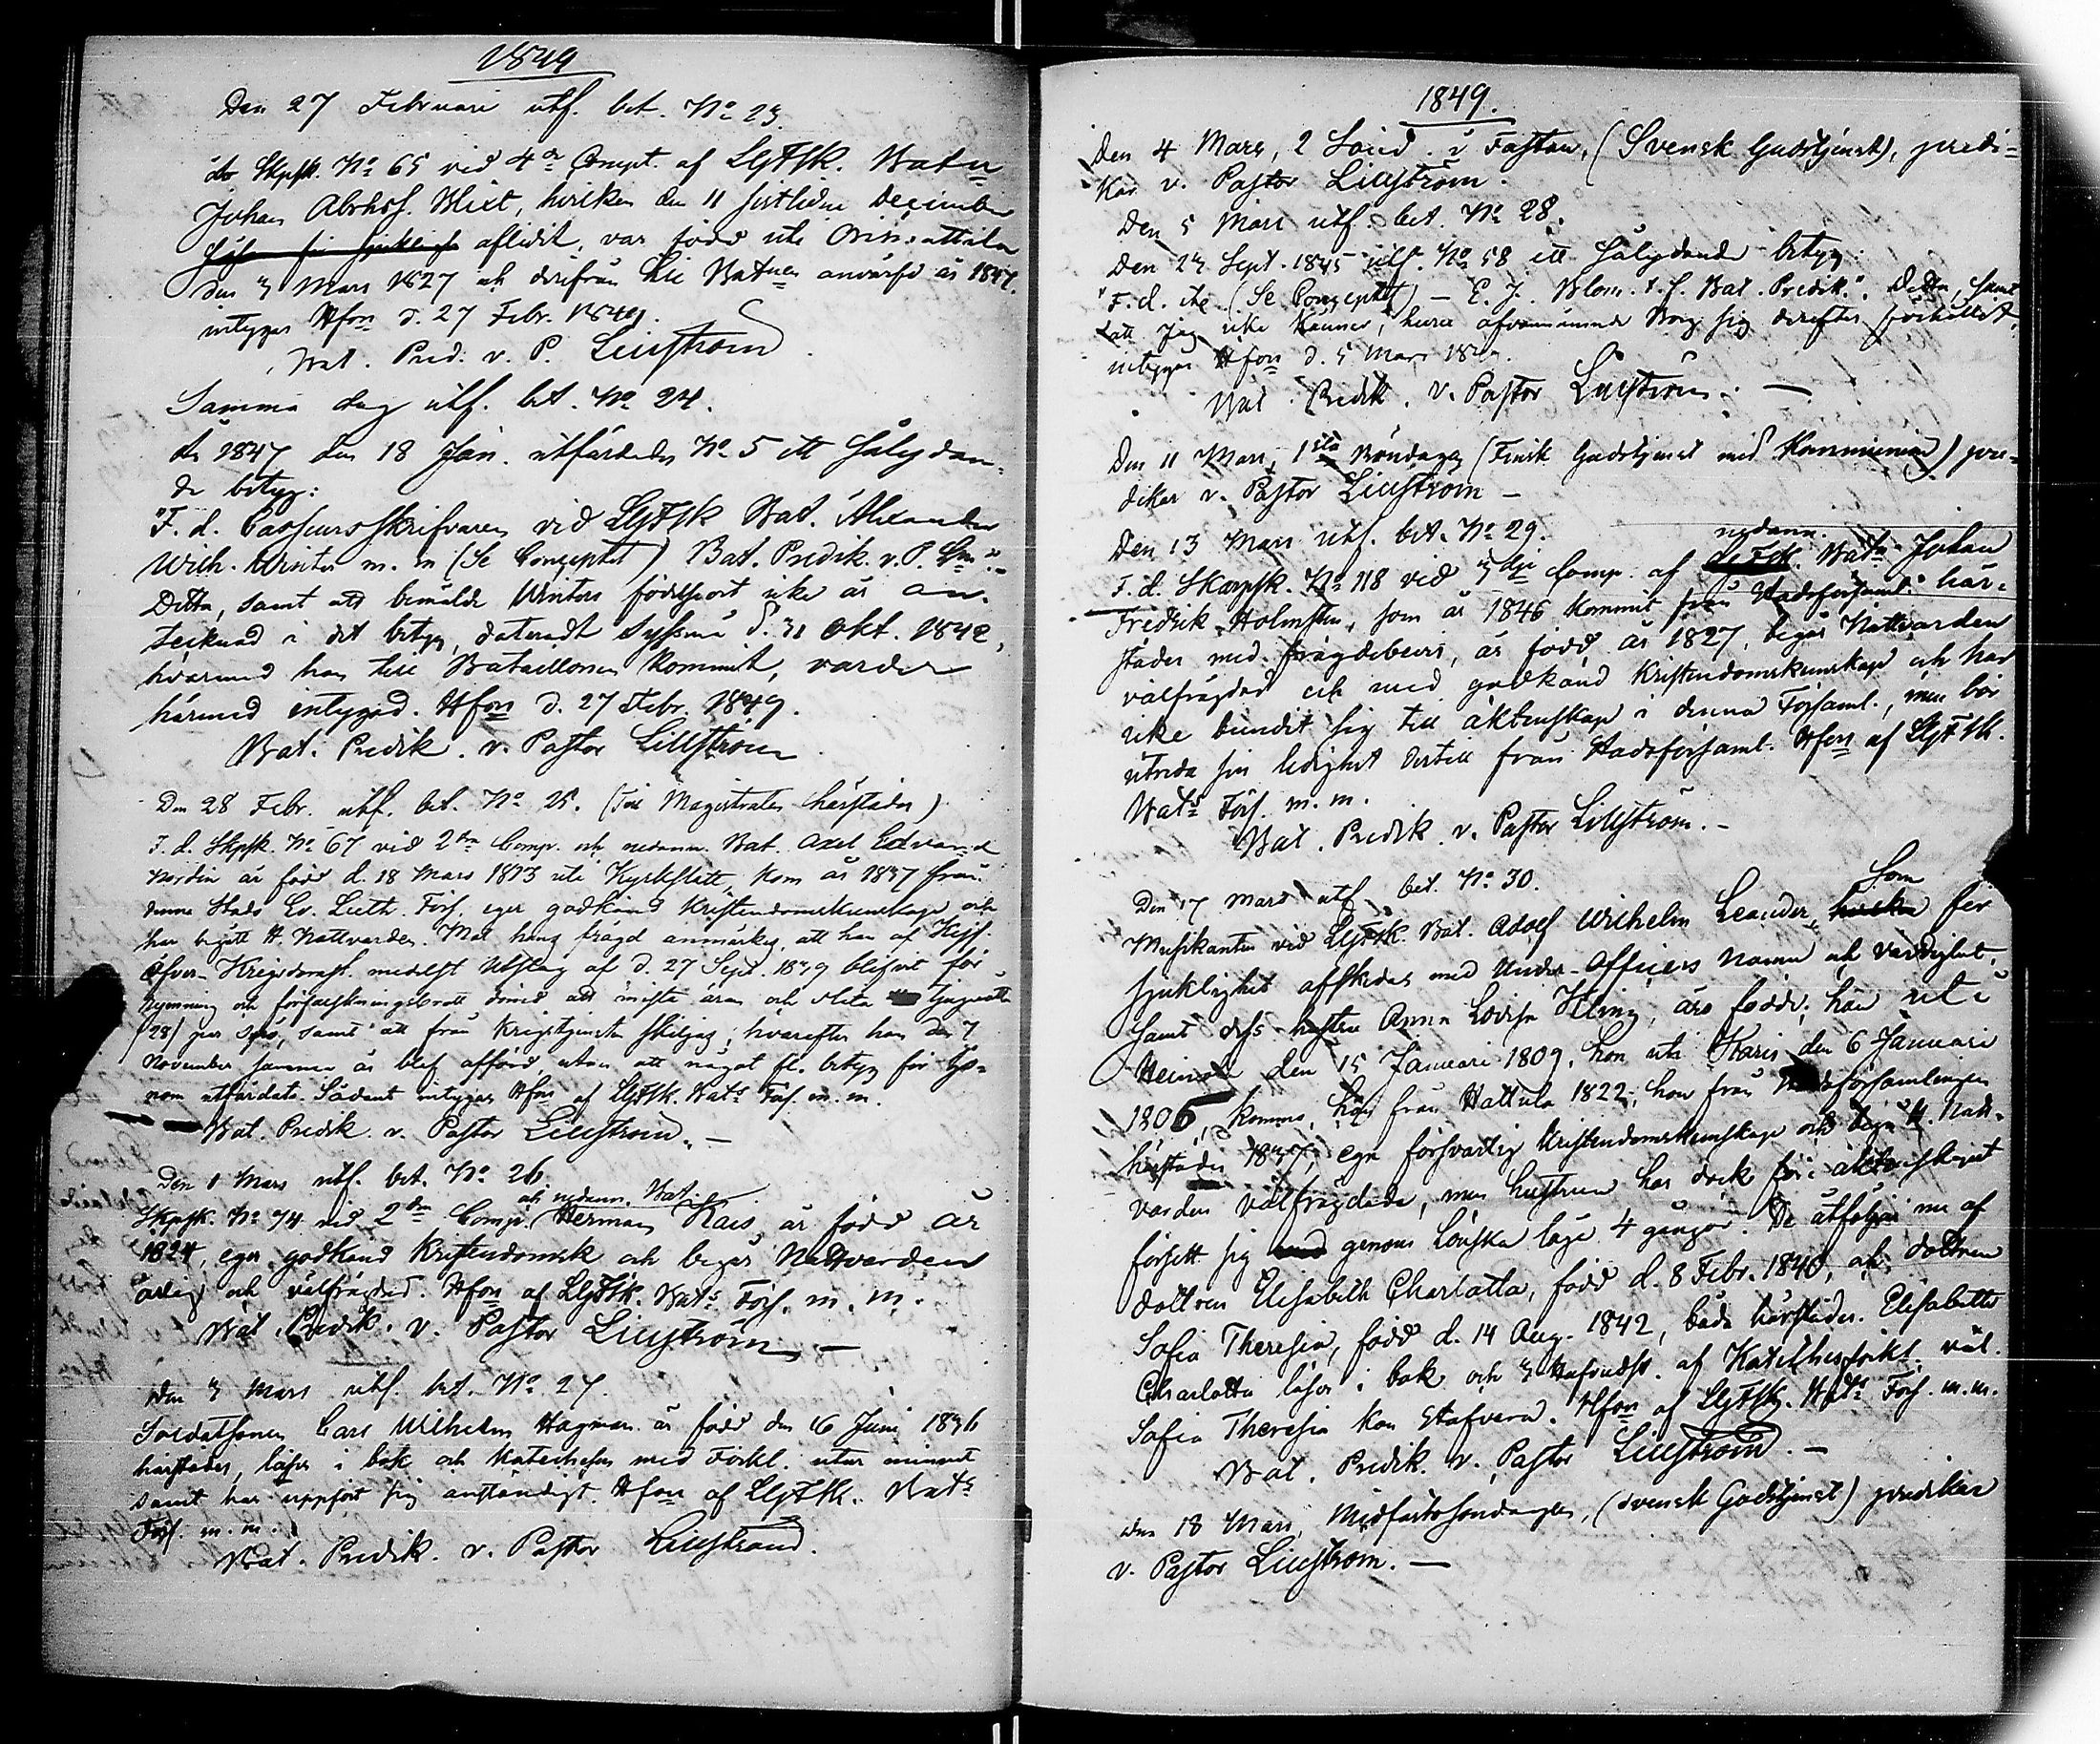 1849
Den 27 Februari utf. bet. No 23.
Skpsk. No 65 vid 4de Compt. af LGFSk. Batn
Johan Abrhsf. Blixt, hvilken den 11 sistledne December
aflidit, var född uti
den 3 Mars 1827 och derifrån till Batnen år 1847.
intygar Hfors d. 27 Febr. 1849.
Bat. Pred. v. P. Lillström
Samma dag utf. bet. No 24.
År 1847 den 18 Jan. utfärdades No 5 ett sålydan-
de betyg:
"F. d. Skrifvaren vid LGFSk Bat. Alexander
Wilh. Winter m. m (Se Conceptet) Bat. Predik. v. P.
Detta, samt att bemälde Winters födelseort icke är an-
tecknad i det betyg, dateradt d. 31 Okt. 1842,
hvarmed han till Bataillonen kommit, varder
härmed intygad. Hfors d. 27 Febr. 1849.
Bat. Predik. v. Pastor Lillström
Den 28 Febr. utf. bet. No 25. (Till Magistraten härstädes)
F. d. Skpsk. No 67 vid 2dra Comp. och nedann. Bat. Axel Edvard
Nordin är född d. 18 Mars 1813 uti Kyrkslätt, kom år 1837 från
denna Stads Ev. Luth. Förs. eger godkänd Kristendomskunskap och
har begått H. Nattvarden. Mot hans frägd anmärkes, att han af Kejs.
Öfver-Krigsdomst. medelst Utslag af d. 27 Sept. 1839 blifvit för
rymning och förfalskningsbrott dömd att mista äran och slita tjuguåtta
(28) par spö, samt att från krigstjensten skiljas; hvarefter han den 7
November samma år blef afförd, utan att något sl. betyg för ho-
nom utfärdats. Sådant intygar Hfors af LGFSk. Bats Förs. m. m.
Bat. Predik. v. Pastor Lillström. —
Den 1 Mars utf. bet. No 26
och nedann. Bat.
Skpsk. No 74 vid 2dra Comp. Herman Rais är född år
1824, eger godkänd Kristendomsk och begår Nattvarden
årlig och välfrägdad. Hfors af LGFSk. Bats Förs. m. m.
Bat. Predik. v. Pastor Lillström —
Den 3 Mars utf. bet. No 27.
Soldatsonen Carl Wilhelm Hagman är född den 6 Juni 1836
härstädes, läser i bok och Katechesen med Förkl. utur minnet
samt har uppfört sig anständigt. Hfors af LGFSk. Bats
Förs. m. m.
Bat. Predik. v. Pastor Lillström.
1849.
Den 4 Mars, 2 Sönd. i Fastan, (Svensk Gudstjenst), predi-
kar v. Pastor Lillström.
Den 5 Mars utf. bet. No 28.
Den 23 Sept. 1845 utf. No 58 ett sålydande betyg:
"F. d. etc (Se Conceptet) — E. J. Blom. t. f. Bat. Predik." Detta, samt
att jag icke känner, huru ofvannämnde Borg sig derefter förhållit,
intygar Hfors d. 5 Mars 1849.
Bat. Predik. v. Pastor Lillström. —
Den 11 Mars, 1sta Böndagen (Finsk Gudstjenst med Kommunion) pre-
dikar v. Pastor Lillström —
Den 13 Mars utf. bet. No 29.
nedann.
F. d. Skarpsk. No 118 vid 3dje Comp. af LGFSk. Batn Johan
Fredrik Holmsten, som år 1846 kommit från Stadsförsaml. här-
städes med frägdebevis, är född år 1827, begår Nattvarden
välfrägdad och med godkänd Kristendomskunskap och har
icke bundit sig till äktenskap i denna Församl., men bör
utreda sin ledighet dertill från Stadsförsaml. Hfors af LGFSk.
Bats Förs. m. m.
Bat. Predik v. Pastor Lillström. —
Den 17 Mars utf. bet. No 30.
som
Musikanten vid LGFSk. Bat. Adolf Wilhelm Leander, hvilken för
sjuklighet afskedas med Under-Officers namn och värdighet,
samt dess hustru Anna Lovisa Iling, äro födde; han uti
Heinola den 15 Januari 1809, hon uti Karis den 6 Januari
1806, komne, han från Hattula 1822, hon från Stadsförsamlingen
härstädes 1837, ega försvarlig Kristendomskunskap och begå H. Natt-
varden välfrägdade, men hustrun har dock före äktenskapet
försett sig med genom lönska läge 4 gånger. De åtföljas nu af
dottren Elisabeth Charlotta, född d. 8 Febr. 1840, och dottren
Sofia Theresia, född d. 14 Aug. 1842, båda härstädes. Elisabeth
Charlotta läser i bok och 3 Hufvudst. af Katekesförkl. väl.
Sofia Theresia kan stafva. Hfors af LGFSk. Bats Förs. m. m.
Bat. Predik. v. Pastor Lillström. —
Den 18 Mars, Midfastosöndagen, (Svensk Gudstjenst) predikar
v. Pastor Lillström. —